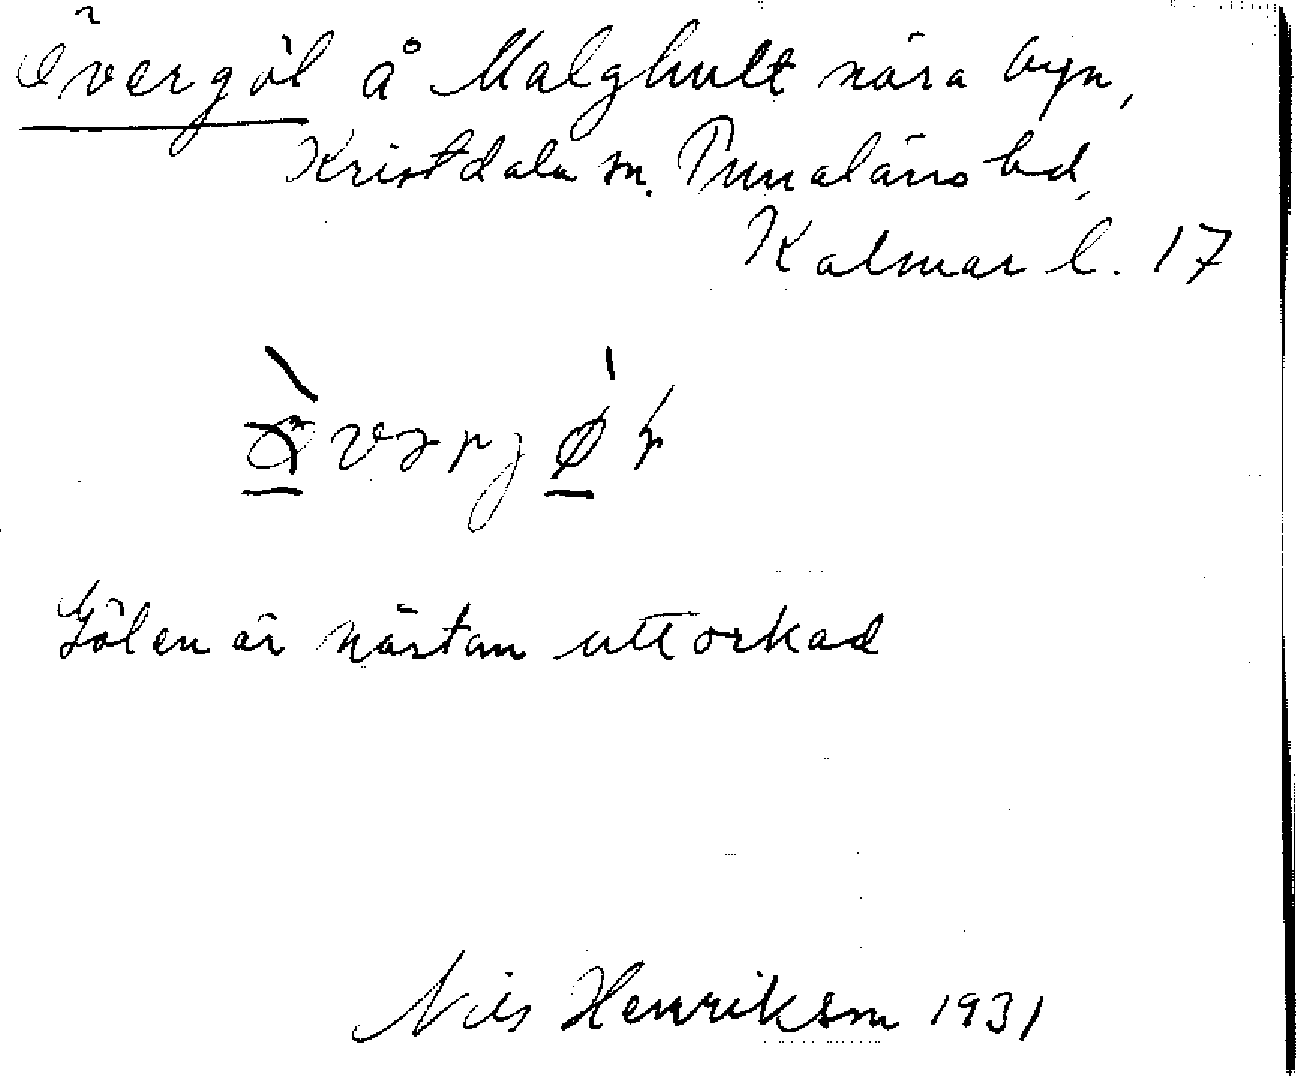 Övergöl å Malghult nära byn,
Kristdala sn. Tunaläns hd,
Kalmar l. 17
Gölen är nästan uttorkad
Nils Henrikson 1931